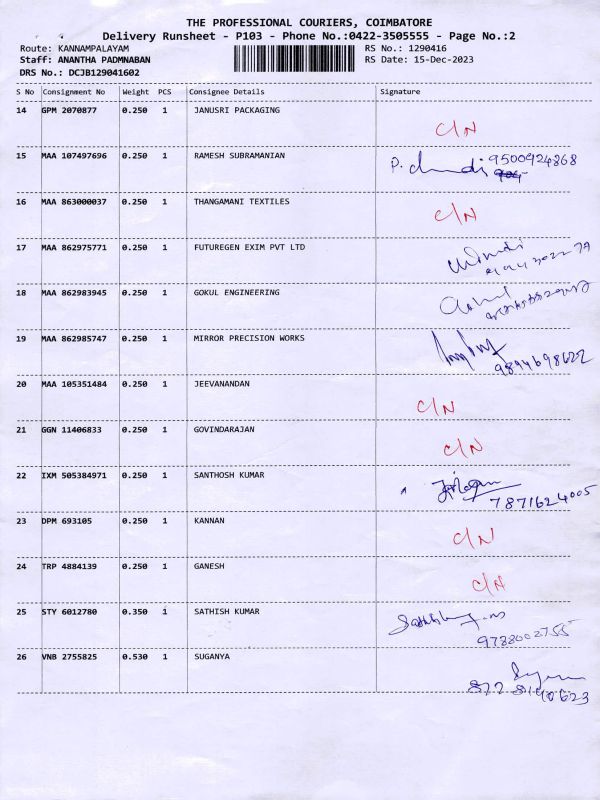 THE PROFESSIONAL COURIERS, COIMBATORE
Delivery Runsheet - P103 - Phone No.:0422-3505555 - Page No.:2
Route: KANNAMPALAYAM RS No.: 1290416
Staff: ANANTHA PADMNABAN RS Date: 15-Dec-2023
DRS No.: DCJB129041602
S No Consignment No Weight PCS Consignee Details Signature
14 GPM 2070877 0.250 1 JANUSRI PACKAGING
C/N
15 MAA 107497696 0.250 1 RAMESH SUBRAMANIAN
P. 9500924868
16 MAA 863000037 0.250 1 THANGAMANI TEXTILES
C/N
17 MAA 862975771 0.250 1 FUTUREGEN EXIM PVT LTD
18 MAA 862983945 0.250 1 GOKUL ENGINEERING
Gokul
19 MAA 862985747 0.250 1 MIRROR PRECISION WORKS
9894698622
20 MAA 105351484 0.250 1 JEEVANANDAN
C/N
21 GGN 11406833 0.250 1 GOVINDARAJAN
C/N
22 IXM 505384971 0.250 1 SANTHOSH KUMAR
7871624005
23 DPM 693105 0.250 1 KANNAN
C/N
24 TRP 4884139 0.250 1 GANESH
C/N
25 STY 6012780 0.350 1 SATHISH KUMAR
9788002755
26 VNB 2755825 0.530 1 SUGANYA
822 8140623